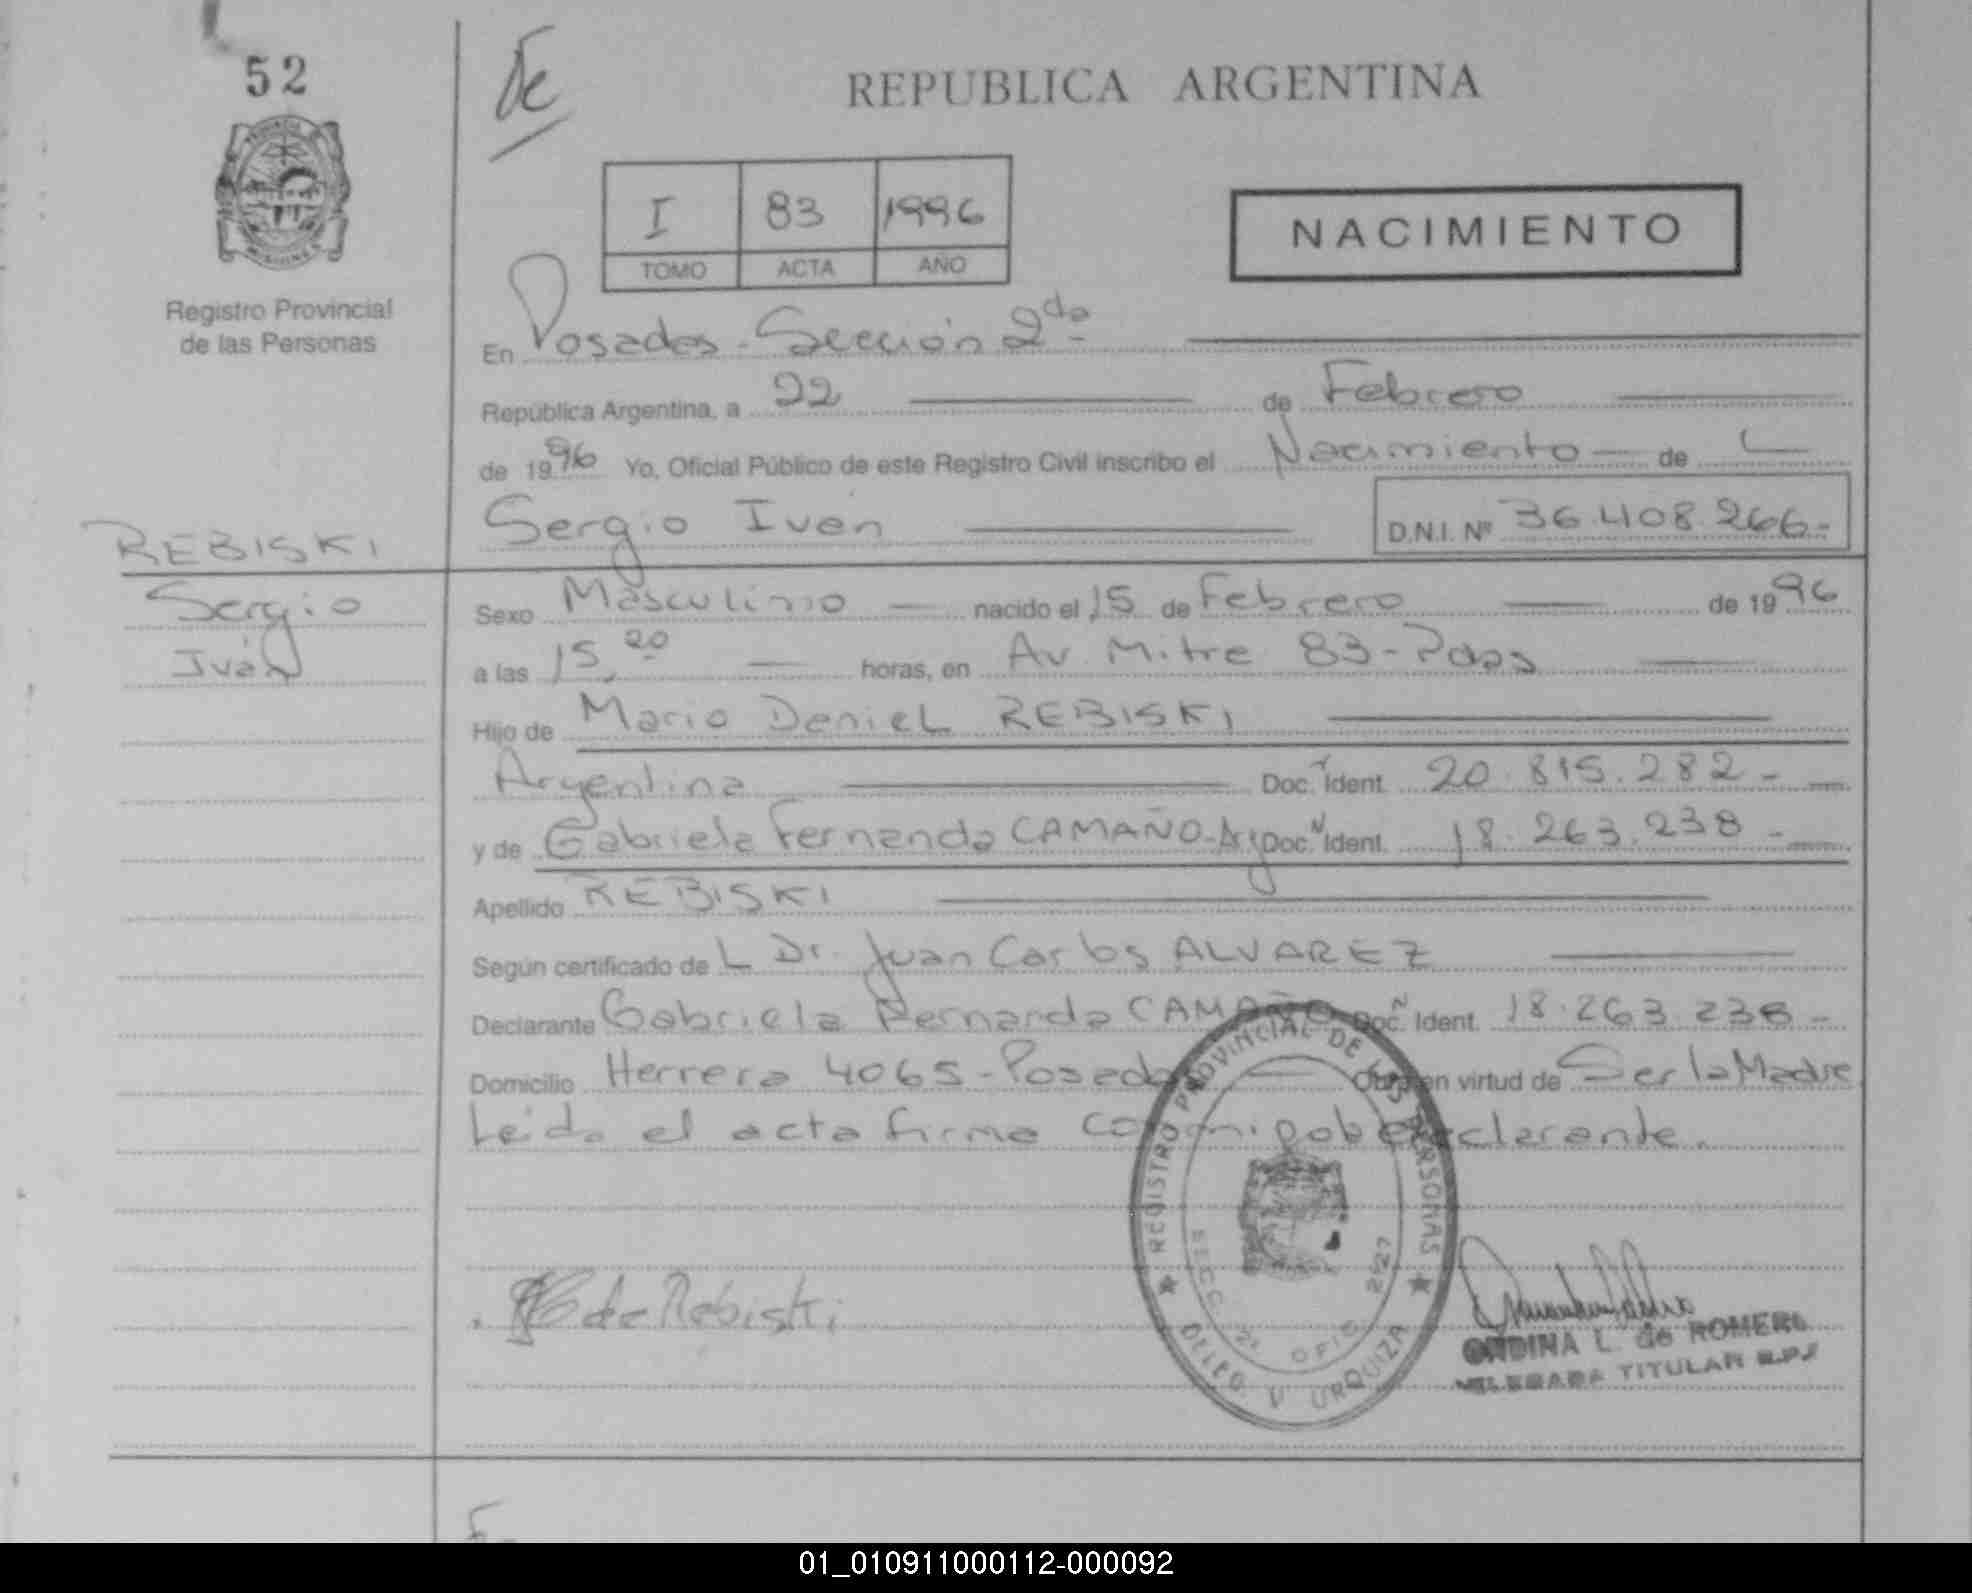 52
De
REPUBLICA ARGENTINA
I 83 1996
TOMO ACTA AÑO
NACIMIENTO
Registro Provincial
de las Personas
En Posadas - Sección 2da-
República Argentina, a 22 de Febrero
de 1996 Yo, Oficial Público de este Registro Civil inscribo el Nacimiento de L
Sergio Iván D.N.I. Nº 36.408.266-
REBISKI
Sergio
Iván
Sexo Masculino nacido el 15 de Febrero de 1996
a las 15,20 horas, en Av. Mitre 83-Pdas
Hijo de Mario Daniel REBISKI
Argentina Doc. Ident. 20.815.282-
y de Gabriela Fernanda CAMAÑO-Arg Doc. Ident. 18.263.238-
Apellido REBISKI
Según certificado de L Dr. Juan Carlos ALVAREZ
Declarante Gabriela Fernanda CAMAÑO Doc. Ident. 18.263.238-
Domicilio Herrera 4065-Posadas Obra en virtud de Ser la Madre
Leída el acta firma declarante.
REGISTRO PROVINCIAL DE LAS PERSONAS
SECC. 2ª OFIC. 2527
DELEG. V. URQUIZA
de Rebiski
L. de ROMERO
DELEGADA TITULAR R.P.
01_010911000112-000092